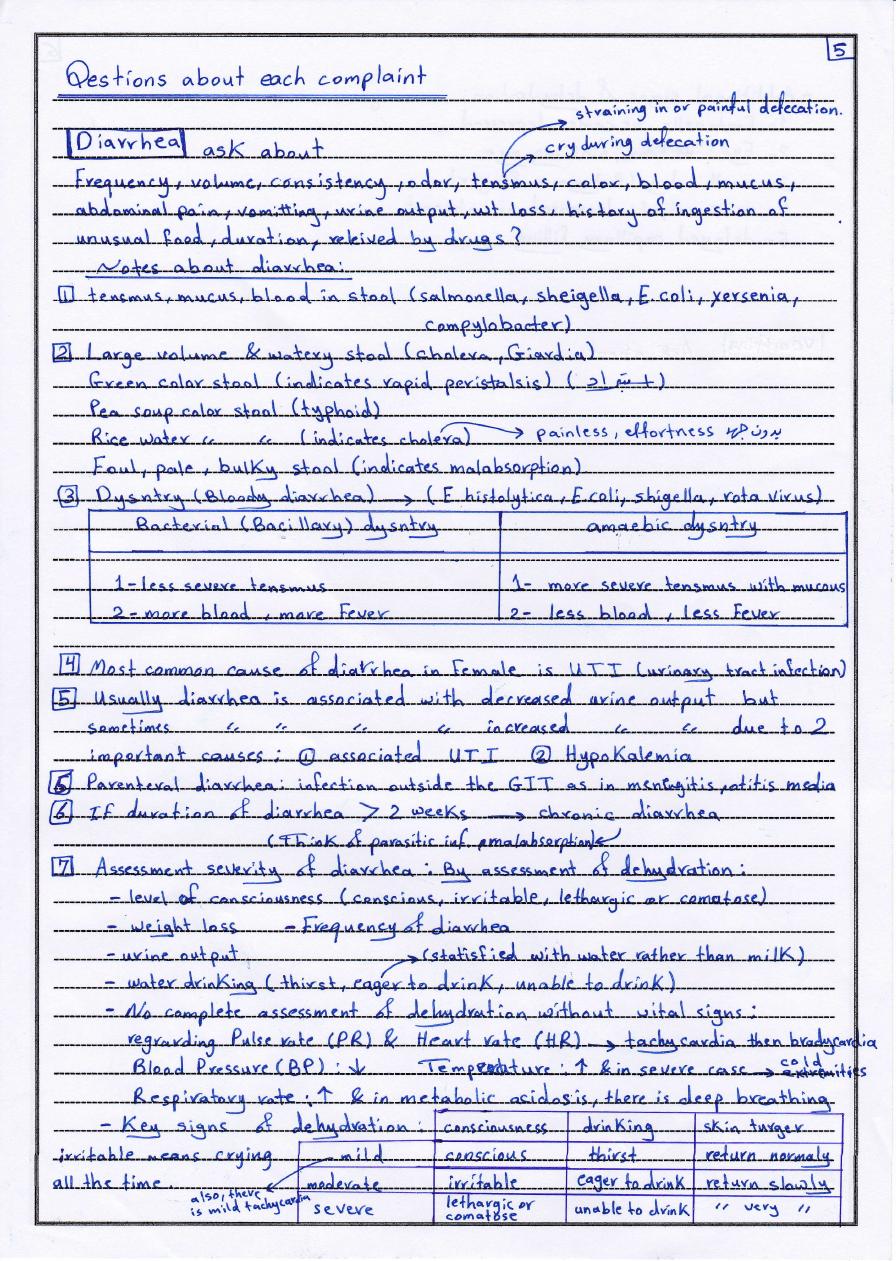 5
Qestions about each complaint
straining in or painful defecation.
Diarrhea ask about
cry during defecation
Frequency, volume, consistency, odor, tensmus, color, blood, mucus,
abdominal pain, vomitting, urine output, wt loss, history of ingestion of
unusual food, duration, releived by drugs?
Notes about diarrhea:
1 tensmus, mucus, blood in stool (salmonella, sheigella, E.coli, yersenia,
compylobacter)
2 Large volume & watery stool (cholera, Giardia)
Green color stool (indicates rapid peristalsis) (
Pea soup color stool (typhoid)
Rice water " " (indicates cholera) → painless, effortness بدون جهد
Foul, pale, bulky stool (indicates malabsorption)
3 Dysntry (Bloody diarrhea) → (E histolytica, E coli, shigella, rota virus)
Bacterial (Bacillary) dysntry amaebic dysntry
1- less severe tensmus 1- more severe tensmus with mucous
2- more blood, more Fever 2- less blood, less Fever
4 Most common cause of diarrhea in Female is UTI (urinary tract infection)
5 Usually diarrhea is associated with decreased urine output but
sometimes " " " " increased " " due to 2
important causes: ① associated UTI ② Hypokalemia
5 Parenteral diarrhea: infection outside the GIT as in meningitis, otitis media
6 If duration of diarrhea > 2 weeks → chronic diarrhea
(Think of parasitic inf. malabsorption)
7 Assessment severity of diarrhea: By assessment of dehydration:
- level of consciousness (conscious, irritable, lethargic or comatose)
- weight loss - Frequency of diarrhea
- urine output → (statisfied with water rather than milk)
- water drinking (thirst, eager to drink, unable to drink)
- No complete assessment of dehydration without vital signs:
regrarding Pulse rate (PR) & Heart rate (HR) → tachycardia then bradycardia
Blood Pressure (BP): ↓ Temperature: ↑ & in severe case → cold extremities
Respiratory rate: ↑ & in metabolic acidosis, there is deep breathing
- Key signs of dehydration: consciousness drinking skin turger
irritable means crying mild conscious thirst return normaly
all the time. moderate irritable eager to drink return slowly
also, there is mild tachycardia
severe lethargic or comatose unable to drink " very "